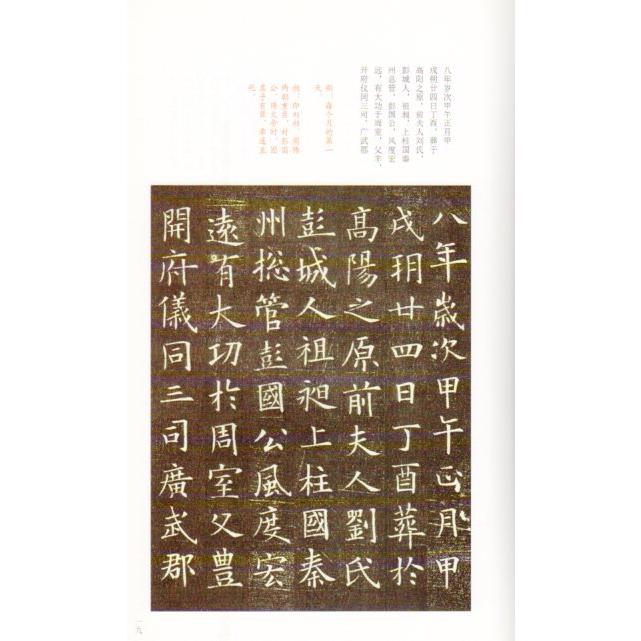 八年岁次甲午正月甲
戌朔廿四日丁酉，葬于
高阳之原。前夫人刘氏，
彭城人，祖昶，上柱国秦
州总管，彭国公，风度宏
远，有大功于周室，父丰，
开府仪同三司，广武郡
朔：每个月的第一
天。
昶：即刘昶，周隋
两朝重臣，封彭国
公。隋文帝时，因
其子有罪，牵连至
死。
八年歲次甲午正月甲
戌玥廿四日丁酉葬於
高陽之原前夫人劉氏
彭城人祖昶上柱國秦
州揔管彭國公風度宏
遠有大功於周室父豊
開府儀同三司廣武郡
一九